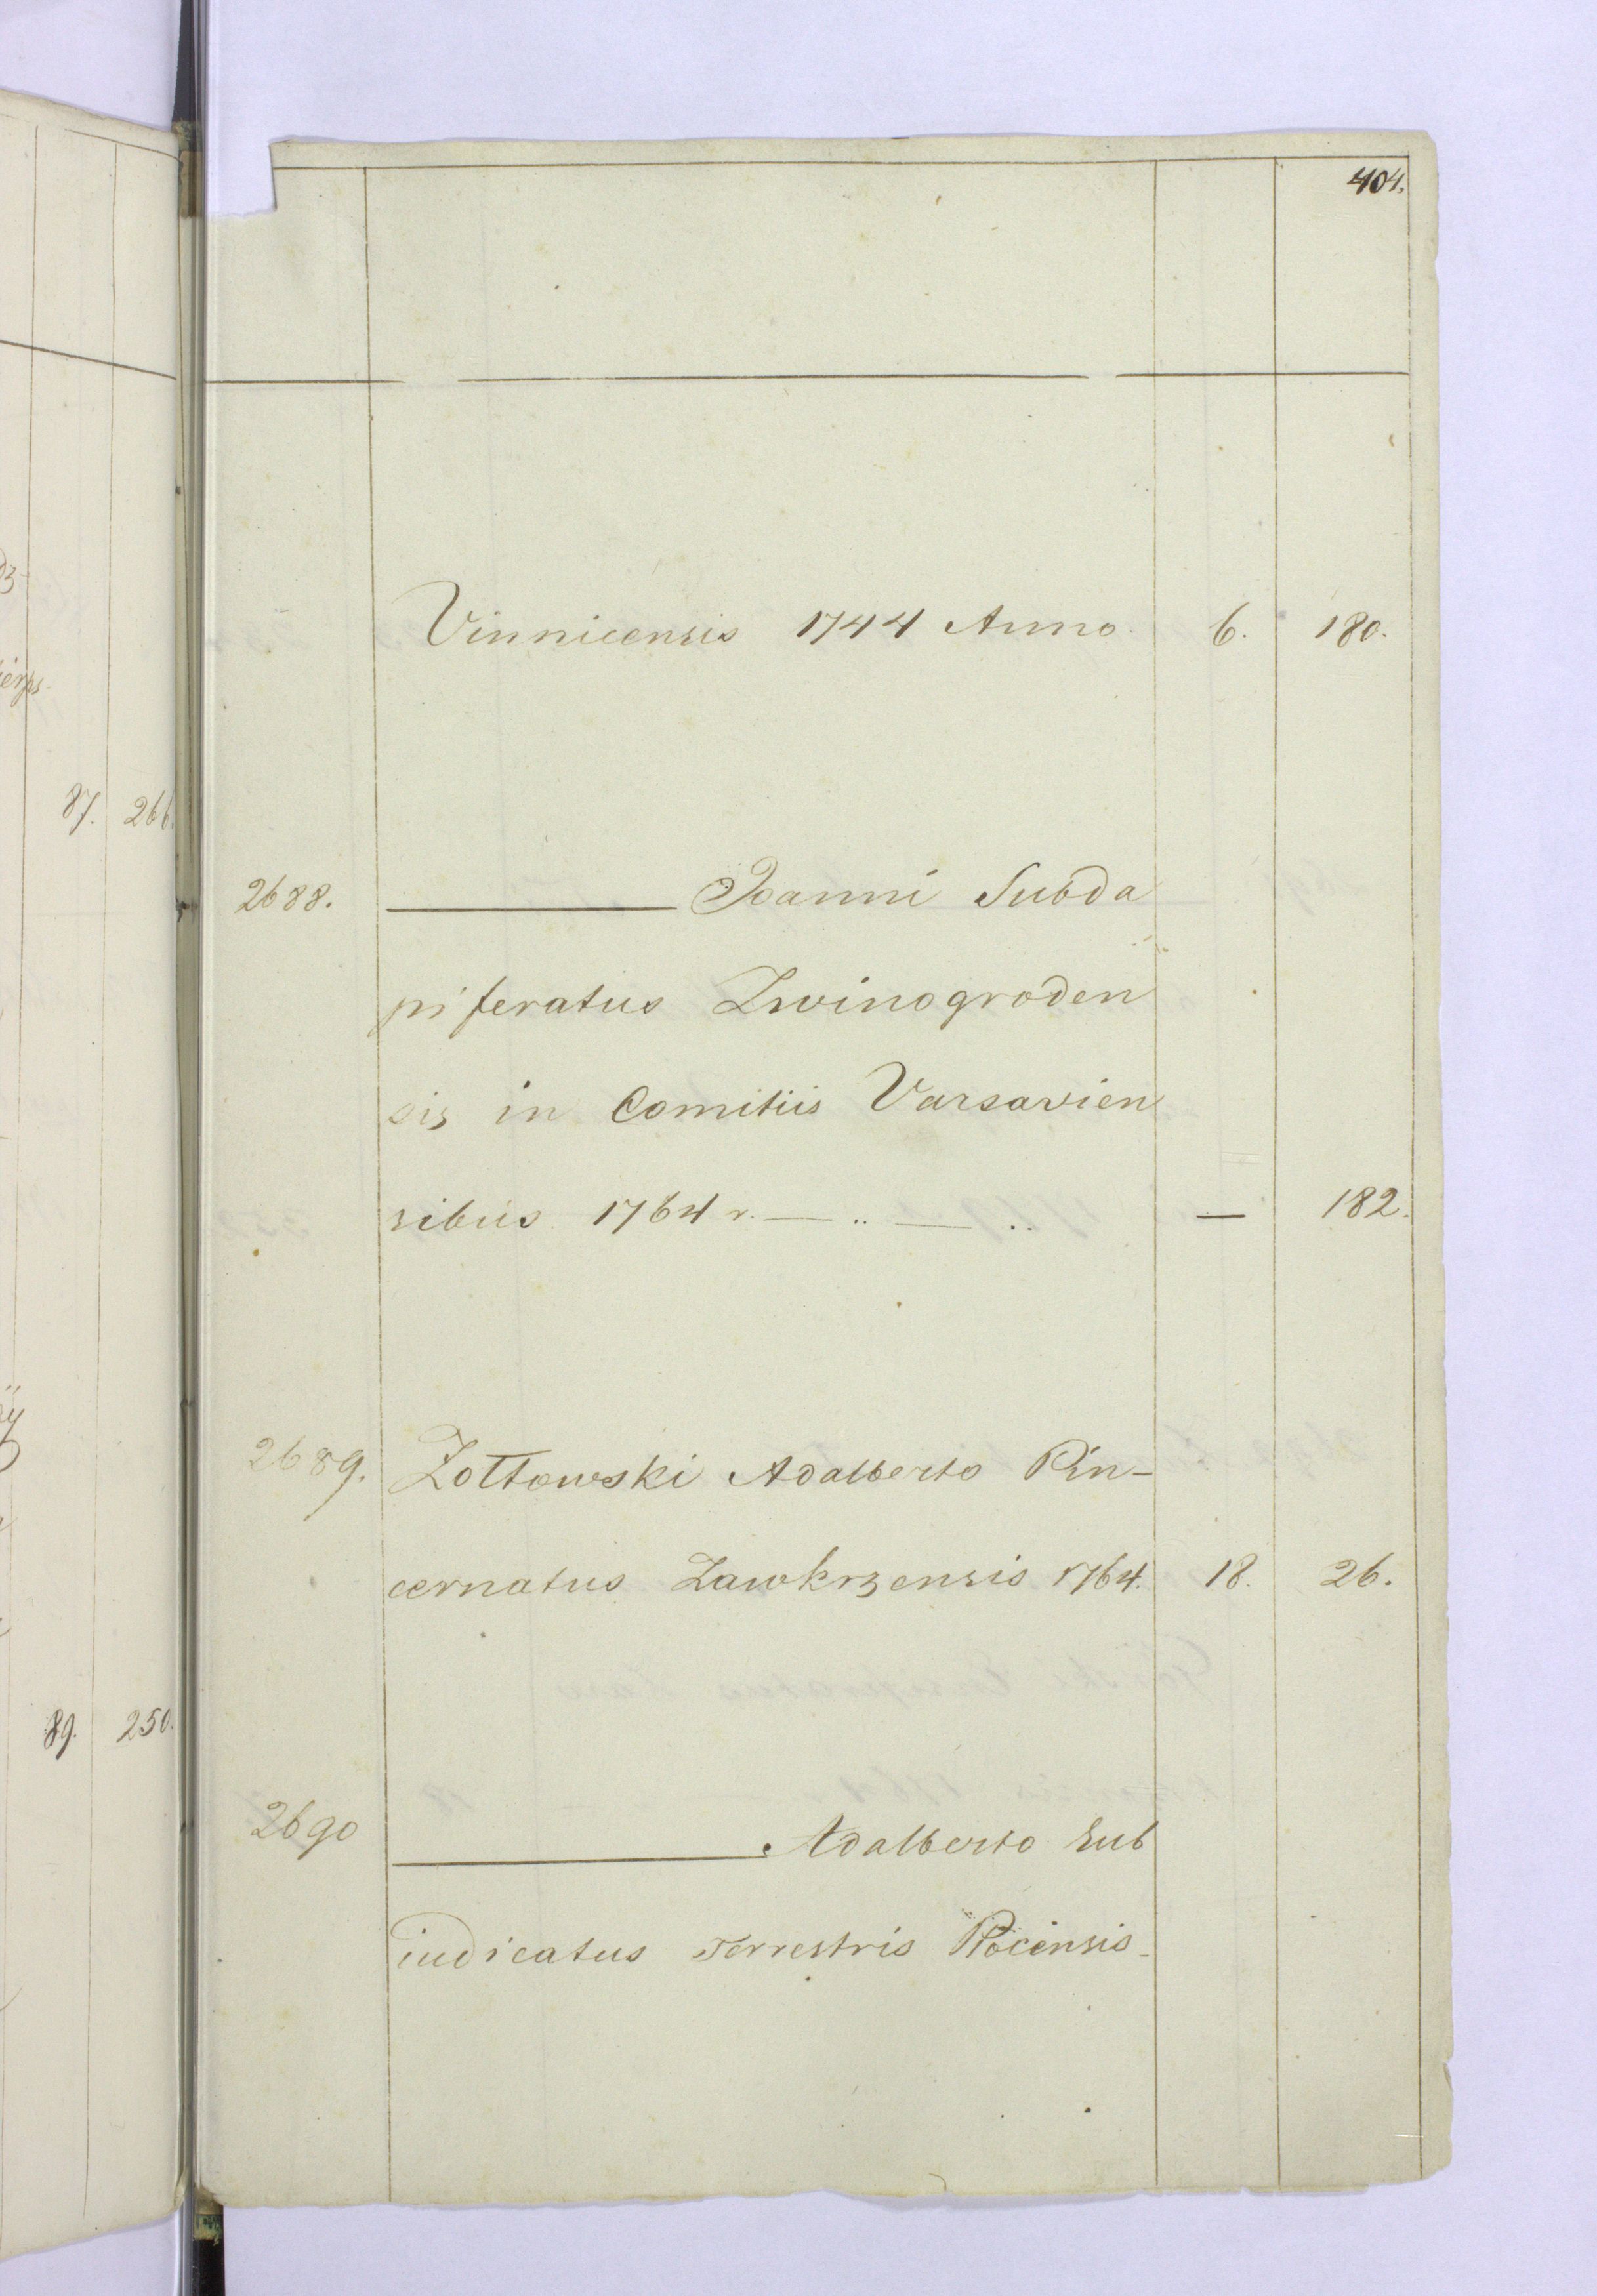 404.
Vinnicensis 1744 Anno 6. 180.
2688. ——— Joanni Subda
piferatus Zwinogroden
sis in Comitiis Varsavien
sibus 1764 r. — .. — .. — 182.
2689. Zottowski Adalberto Pin-
cernatus Zawkrzensis 1764. 18. 26.
2690 ——— Adalberto Sub
iudicatus Terrestris Plocensis
87. 266.
89. 250.